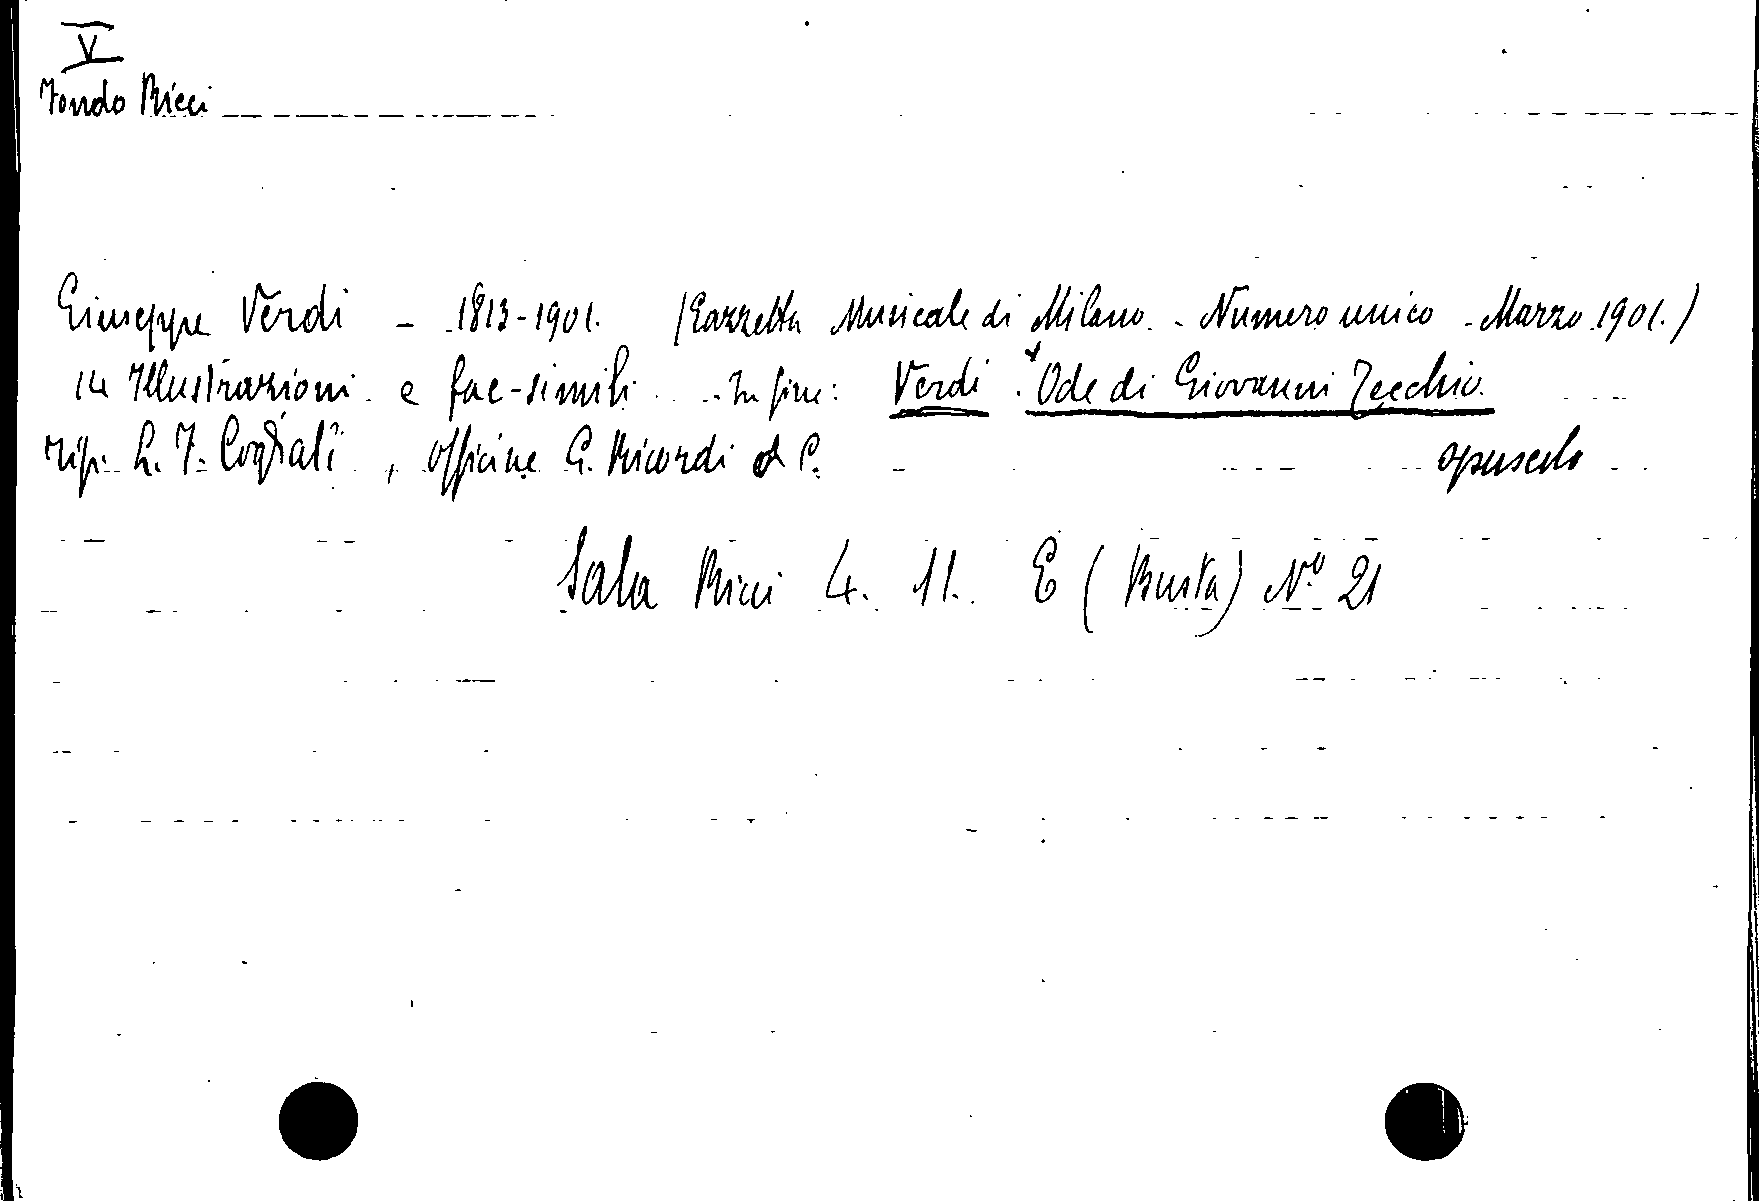 V
Fondo Ricci
Giuseppe Verdi - 1813-1901. (Gazzetta Musicale di Milano - Numero unico - Marzo 1901.)
14 Illustrazioni e fac-simili - In fine: Verdi. Ode di Giovanni Zecchio.
Tip. L. F. Cogliati, officine G. Ricordi & C. opuscolo
Sala Ricci 4. 11. E (Busta) N.º 21